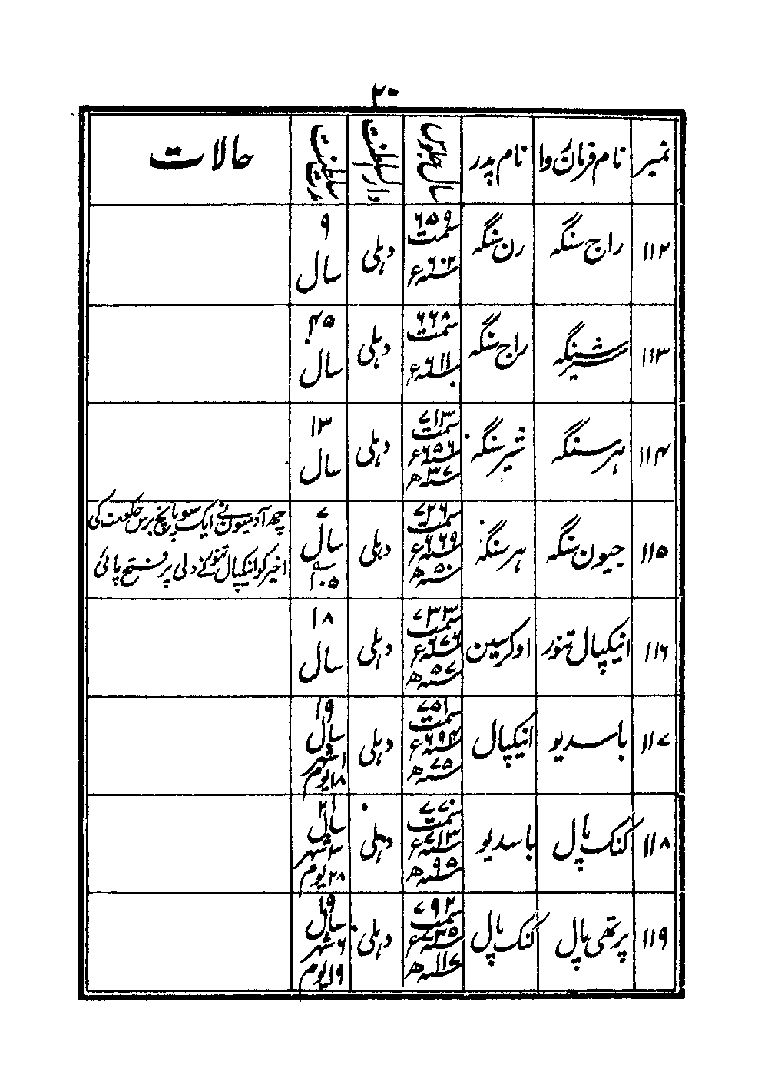 ۲۰
نمبر | نام فرمان روا | نام پدر | سال جلوس | دارالسلطنت | مدت سلطنت | حالات
۱۱۲ | راج سنگه | رن سنگه | ۶۵۹ سمت ۶۰۲ سنہ ء | دہلی | ۹ سال |
۱۱۳ | شیر سنگه | راج سنگه | ۶۶۸ سمت ۶۱۱ سنہ ء | دہلی | ۴۵ سال |
۱۱۴ | ہر سنگه | شیر سنگه | ۷۱۳ سمت ۶۵۶ سنہ ء ۳۷ سنہ ھ | دہلی | ۱۳ سال |
۱۱۵ | جیون سنگه | ہر سنگه | ۷۲۶ سمت ۶۶۹ سنہ ء ۵۰ سنہ ھ | دہلی | ۷ سال ۱۰۵ | چھ آدمیون نے ایک سو پانچ برس حکومت کی
اخیر کو انیکپال تنور نے دلی پر فتح پائی
۱۱۶ | انیکپال تنور | اوکرسین | ۷۳۳ سمت ۶۷۶ سنہ ء ۵۷ سنہ ھ | دہلی | ۱۸ سال |
۱۱۷ | باسدیو | انیکپال | ۷۵۱ سمت ۶۹۴ سنہ ء ۷۵ سنہ ھ | دہلی | ۱۹ سال ۱ شہر ۱۸ یوم |
۱۱۸ | کنک پال | باسدیو | ۷۷۰ سمت ۷۱۳ سنہ ء ۹۵ سنہ ھ | دہلی | ۲۱ سال ۳ شہر ۲۸ یوم |
۱۱۹ | پرتھی پال | کنک پال | ۷۹۲ سمت ۷۳۵ سنہ ء ۱۱۷ سنہ ھ | دہلی | ۱۹ سال ۶ شہر ۱۹ یوم |